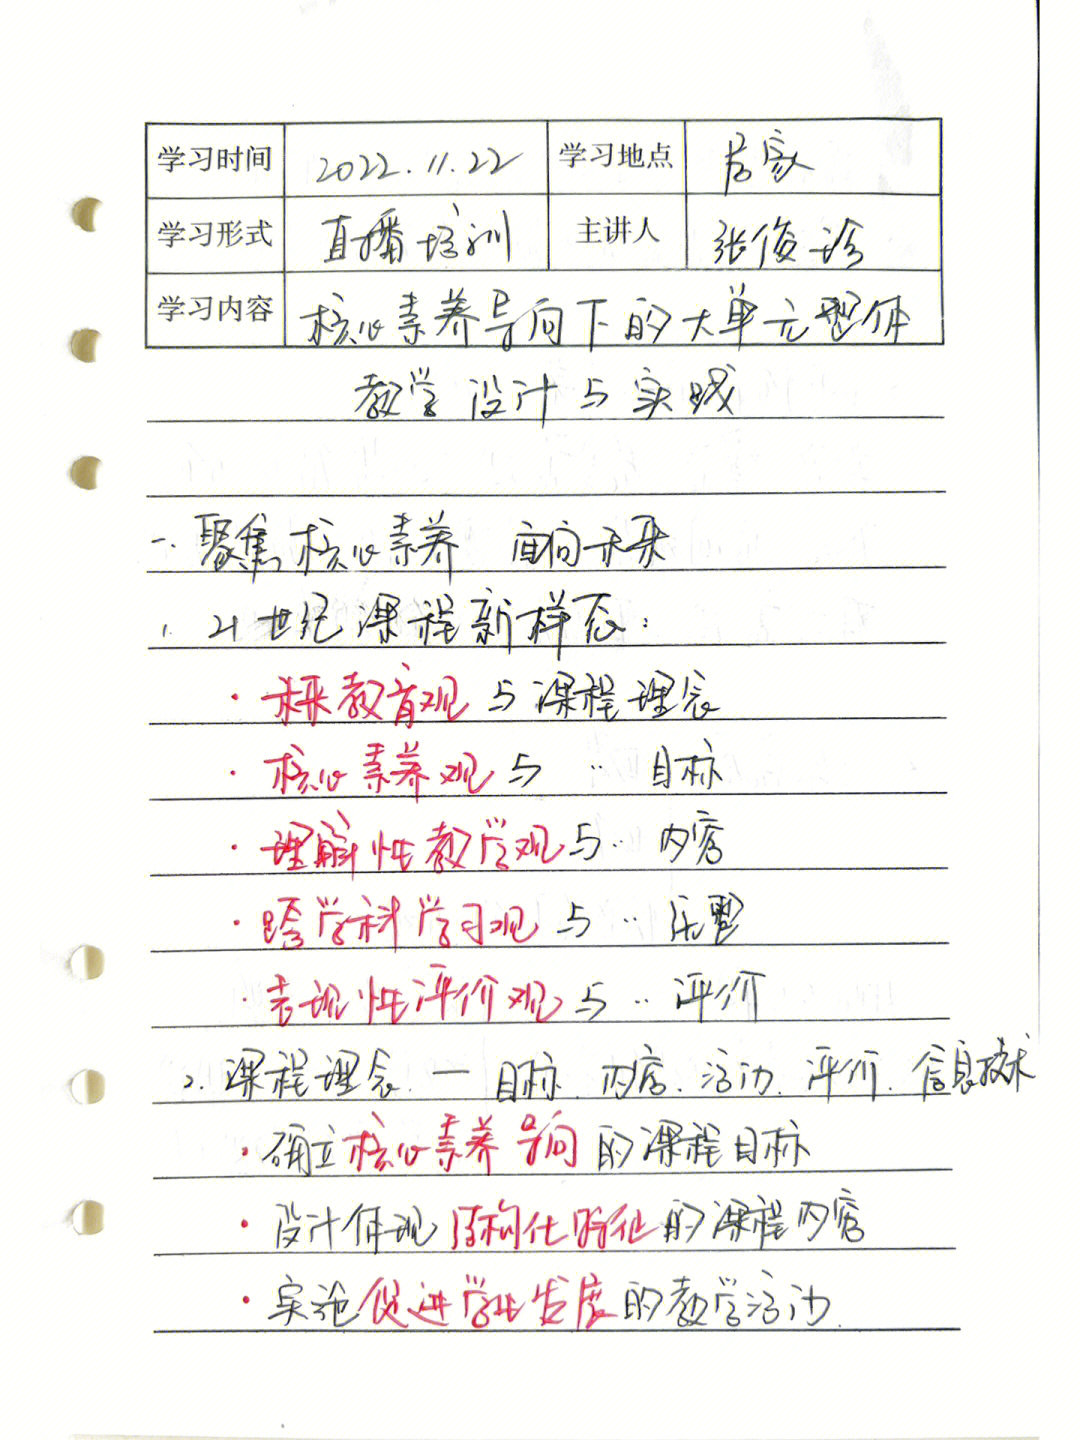 学习时间 2022.11.22 学习地点 居家
学习形式 直播培训 主讲人 张俊珍
学习内容 核心素养导向下的大单元整体
教学设计与实践
一、聚焦核心素养 面向未来
1. 21世纪课程新样态：
· 未来教育观与课程理念
· 核心素养观与 ‥ 目标
· 理解性教学观与 ‥ 内容
· 跨学科学习观与 ‥
· 表现性评价观与 ‥ 评价
2. 课程理念 — 目标、内容、活动、评价、信息技术
· 确立核心素养导向的课程目标
· 设计体现结构化特征的课程内容
· 实施促进学生发展的教学活动